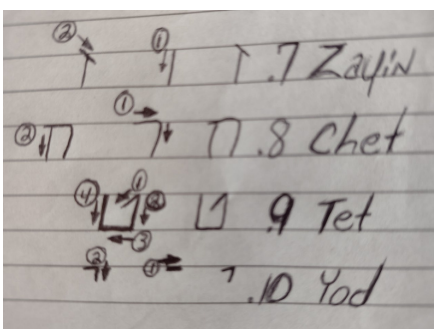 ② ① ז .7 Zayin
② ① ח .8 Chet
④ ① ② ③ ט .9 Tet
② ① י .10 Yod